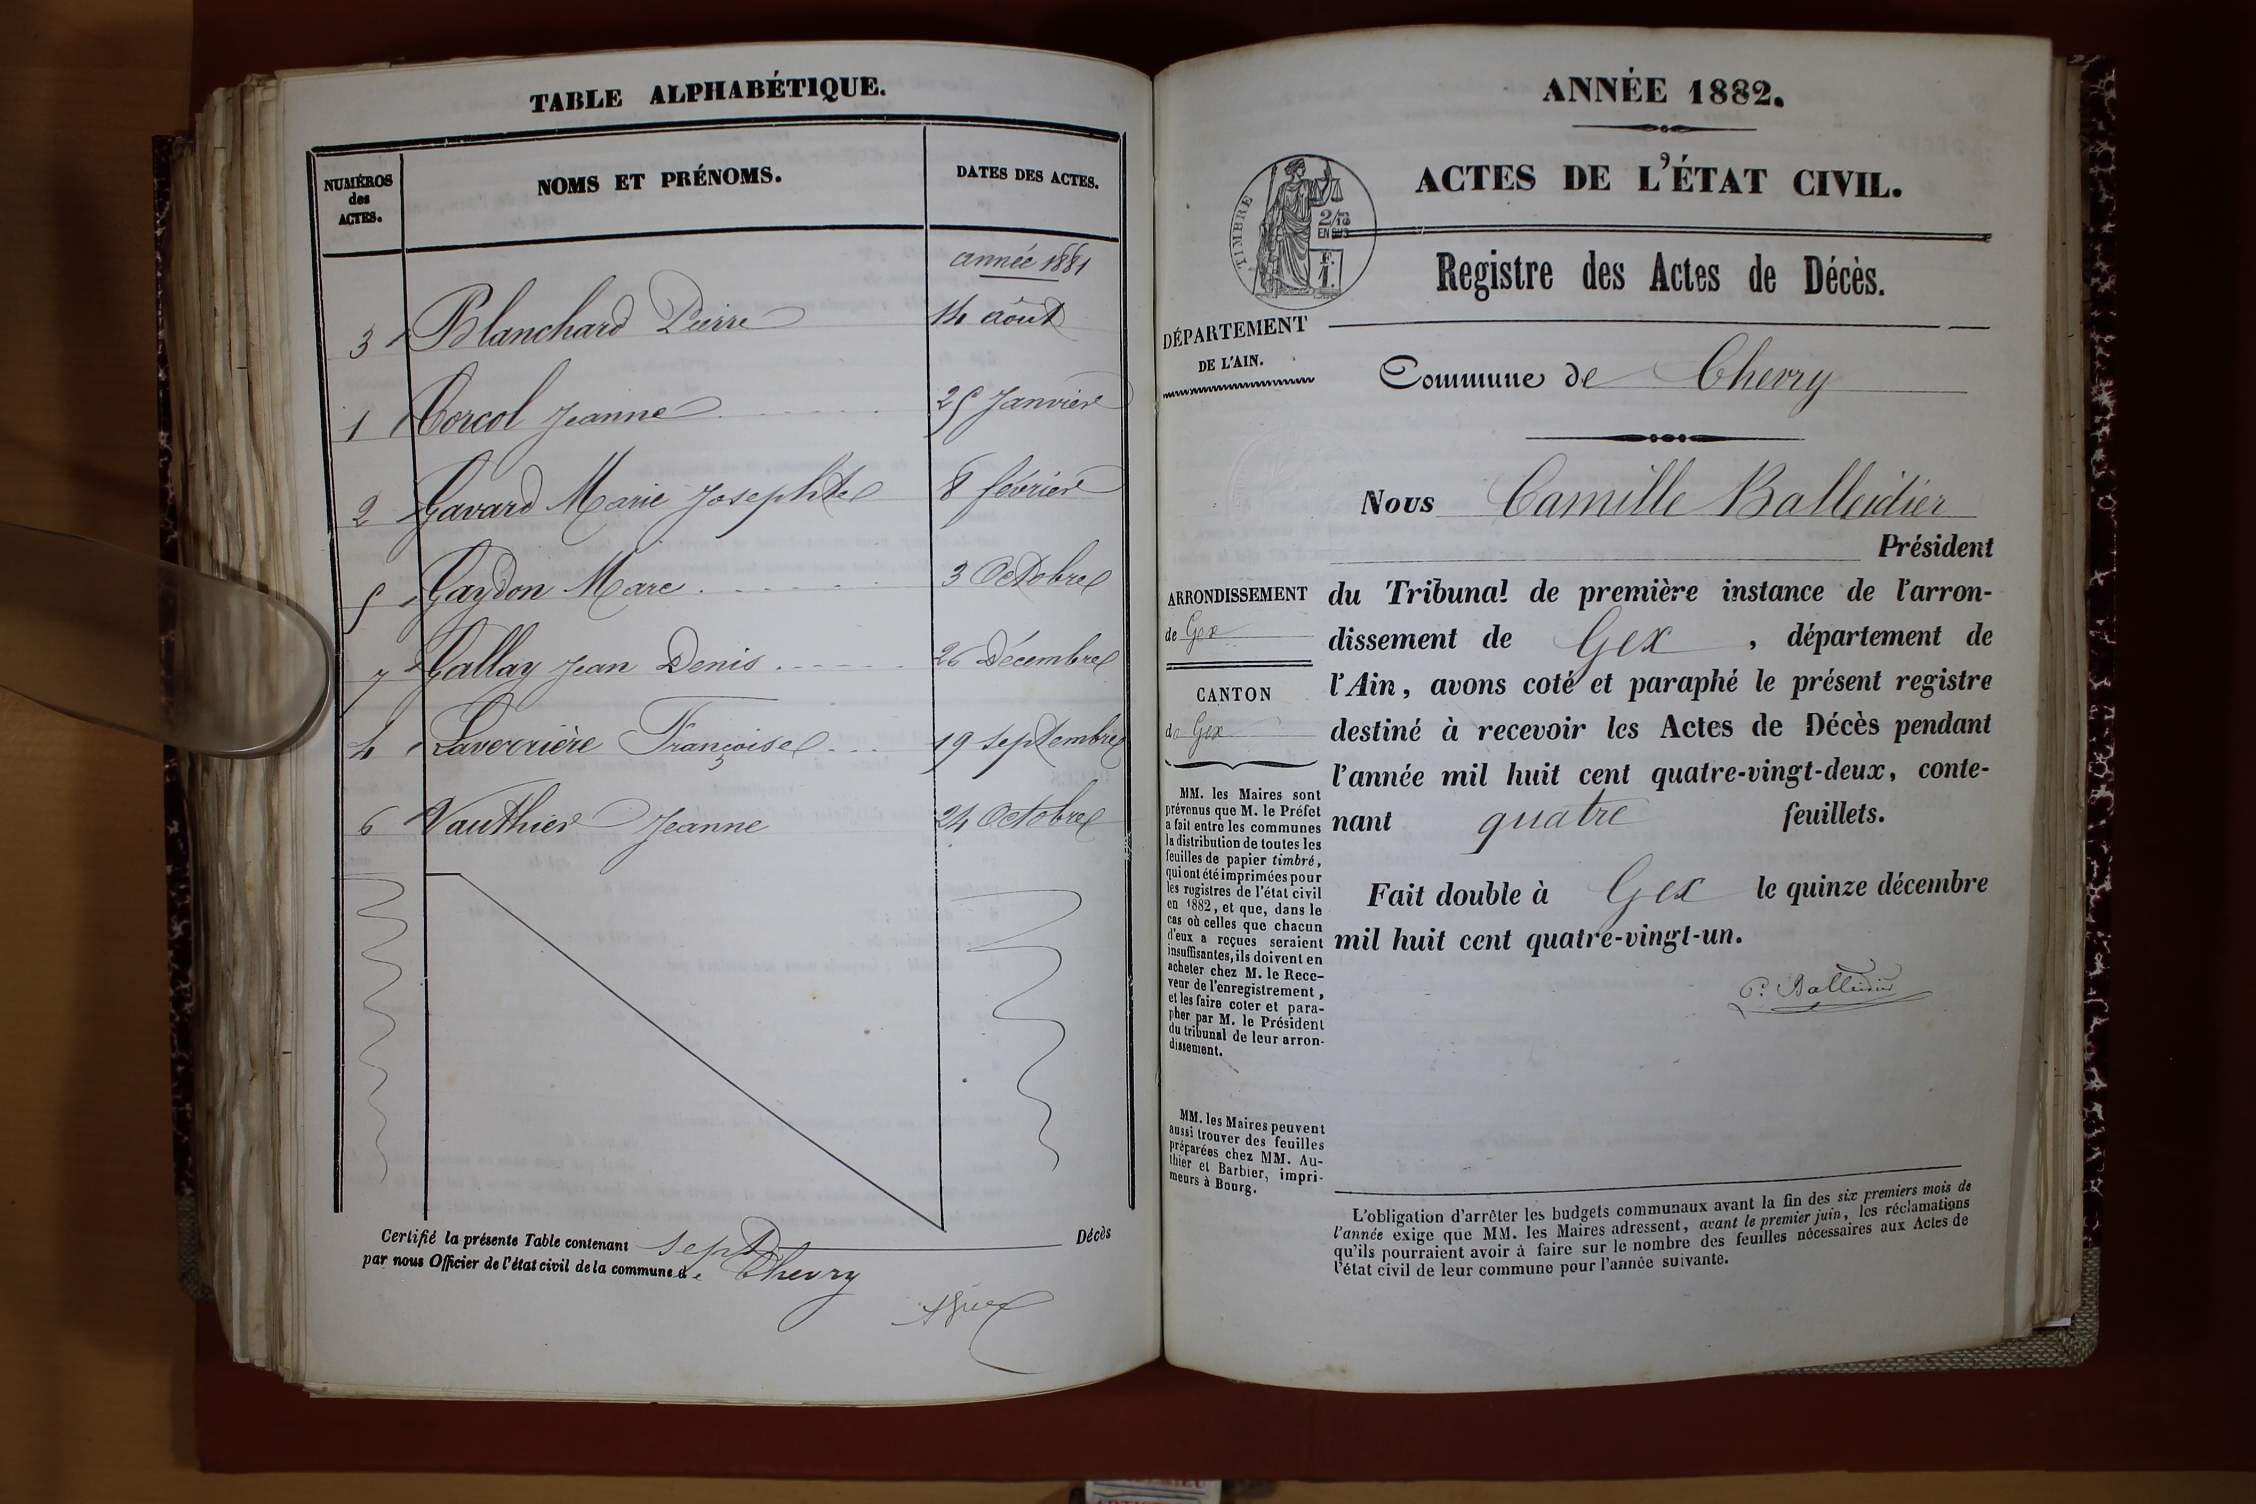 TABLE ALPHABÉTIQUE.
NUMÉROS des ACTES.
NOMS ET PRÉNOMS.
DATES DES ACTES.
année 1881
3 Blanchard Pierre 14 août
1 Corcol Jeanne 25 Janvier
2 Gavard Marie Josephte 8 février
5 Gaydon Marc 3 Octobre
7 Gallay Jean Denis 26 Décembre
4 Laverrière Françoise 19 septembre
6 Vauthier Jeanne 24 Octobre
Certifié la présente Table contenant sept Décès
par nous Officier de l'état civil de la commune de Chevry
ANNÉE 1882.
ACTES DE L'ÉTAT CIVIL.
TIMBRE
2/10 EN SUS
F. 1.
Registre des Actes de Décès.
DÉPARTEMENT
DE L'AIN.
Commune de Chevry
Nous Camille Balleidier
Président
du Tribunal de première instance de l'arron-
dissement de Gex, département de
l'Ain, avons coté et paraphé le présent registre
destiné à recevoir les Actes de Décès pendant
l'année mil huit cent quatre-vingt-deux, conte-
nant quatre feuillets.
Fait double à Gex le quinze décembre
mil huit cent quatre-vingt-un.
C. Balleidier
ARRONDISSEMENT
de Gex
CANTON
de Gex
MM. les Maires sont
prévenus que M. le Préfet
a fait entre les communes
la distribution de toutes les
feuilles de papier timbré,
qui ont été imprimées pour
les registres de l'état civil
en 1882, et que, dans le
cas où celles que chacun
d'eux a reçues seraient
insuffisantes, ils doivent en
acheter chez M. le Rece-
veur de l'enregistrement,
et les faire coter et para-
pher par M. le Président
du tribunal de leur arron-
dissement.
MM. les Maires peuvent
aussi trouver des feuilles
préparées chez MM. Au-
thier et Barbier, impri-
meurs à Bourg.
L'obligation d'arrêter les budgets communaux avant la fin des six premiers mois de
l'année exige que MM. les Maires adressent, avant le premier juin, les réclamations
qu'ils pourraient avoir à faire sur le nombre des feuilles nécessaires aux Actes de
l'état civil de leur commune pour l'année suivante.